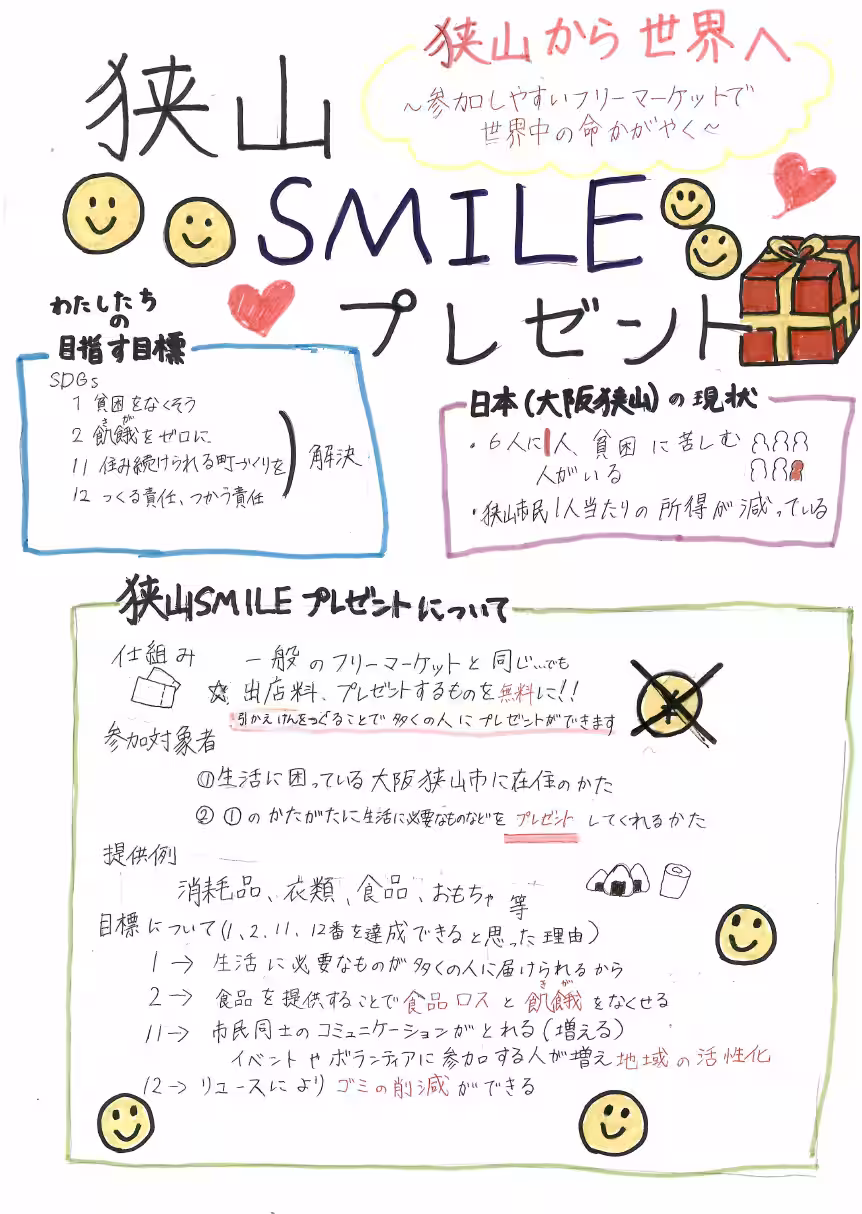 狭山から世界へ
～参加しやすいフリーマーケットで
世界中の命かがやく～
狭山
SMILE
プレゼント
わたしたち
の
目指す目標
SDGs
1 貧困をなくそう
2 飢餓をゼロに
きが
11 住み続けられる町づくりを
12 つくる責任、つかう責任
解決
日本(大阪狭山)の現状
・6人に1人、貧困に苦しむ
人がいる
・狭山市民1人当たりの所得が減っている
狭山SMILEプレゼントについて
仕組み
一般のフリーマーケットと同じ…でも
☆出店料、プレゼントするものを無料に!!
引かえけんをつくることで多くの人にプレゼントができます
¥
参加対象者
①生活に困っている大阪狭山市に在住のかた
②①のかたがたに生活に必要なものなどをプレゼントしてくれるかた
提供例
消耗品、衣類、食品、おもちゃ等
目標について(1、2、11、12番を達成できると思った理由)
1→ 生活に必要なものが多くの人に届けられるから
2→ 食品を提供することで食品ロスと飢餓をなくせる
きが
11→ 市民同士のコミュニケーションがとれる(増える)
イベントやボランティアに参加する人が増え地域の活性化
12→リユースによりゴミの削減ができる